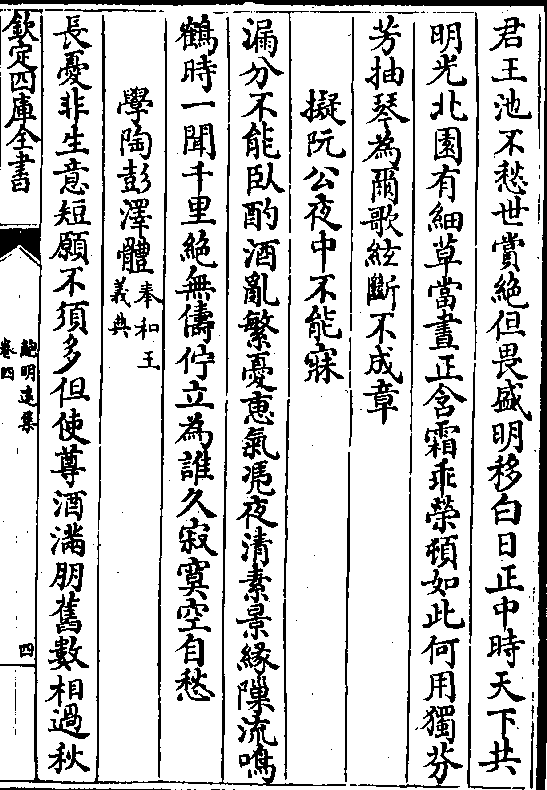 君王池不愁世賞絶但畏盛明移白日正中時天下共
明光北園有細草當晝正含霜乖榮頓如此何用獨芬
芳抽琴為爾歌絃斷不成章
擬阮公夜中不能寐
漏分不能臥酌酒亂繁憂恵氣凴夜清素景縁隟流鳴
鶴時一聞千里絶無儔佇立為誰久寂寞空自愁
學陶彭澤體奉和王義典
長憂非生意短願不須多但使尊酒滿朋舊數相過秋
欽定四庫全書
鮑明逺集
卷四
四